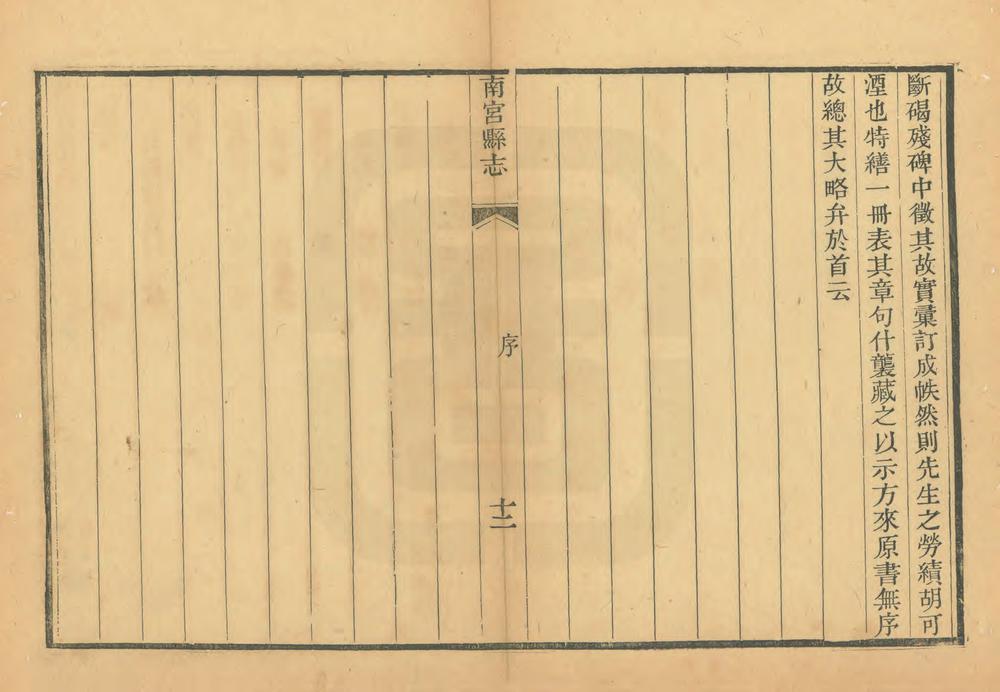 斷碣殘碑中徵其故實彙訂成帙然則先生之勞績胡可
湮也特繕一冊表其章句什襲藏之以示方來原書無序
故總其大略弁於首云
南宮縣志
序
十二